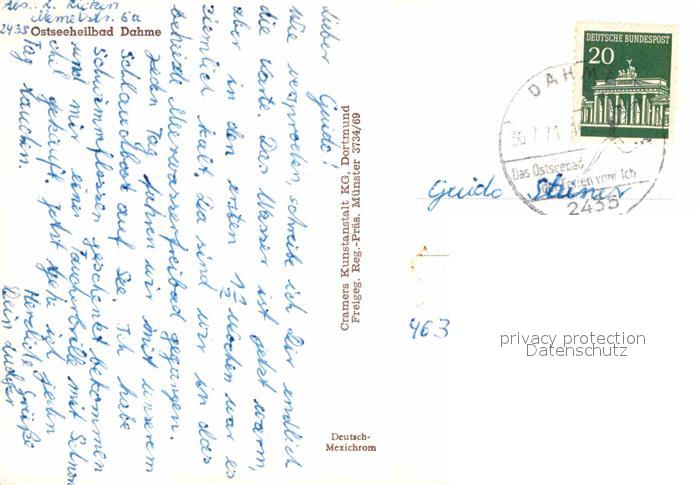 Abs.: L. Ricken
Memelstr. 6a
2435 Ostseeheilbad Dahme
Lieber Guido!
Wie versprochen, schreibe ich Dir endlich
die Karte. Das Wasser ist jetzt warm,
aber in den ersten 1½ Wochen war es
ziemlich kalt. Da sind wir in das
beheizte Meerwasserfreibad gegangen.
Jeden Tag fahren wir mit unserem
Schlauchboot auf See. Ich habe
Schwimmflossen geschenkt bekommen
und mir eine Taucherbrille mit Schnor
chel gekauft. Jetzt gehe ich jeden
Tag tauchen.
Herzliche Grüße
Dein Ludger
Cramers Kunstanstalt KG, Dortmund
Freigeg. Reg.-Präs. Münster 3734/69
Deutsch-
Mexichrom
DEUTSCHE BUNDESPOST
20
DAHME
30.7.71
Das Ostseebad
Ferien vom Ich
2435
Guido Steiner
463
privacy protection
Datenschutz